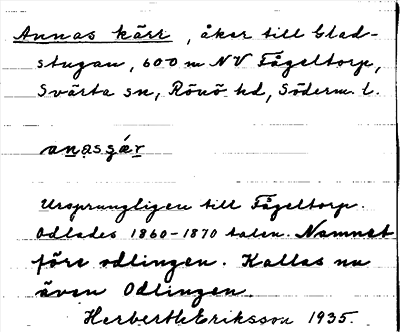 Annas kärr, åker till Glad-
stugan, 600 m NV Fågeltorp,
Svärta sn, Rönö hd, Söderm. l.
Ursprungligen till Fågeltorp.
Odlades 1860-1870 talen. Namnet
före odlingen. Kallas nu
även Odlingen.
Herberth Eriksson 1935.